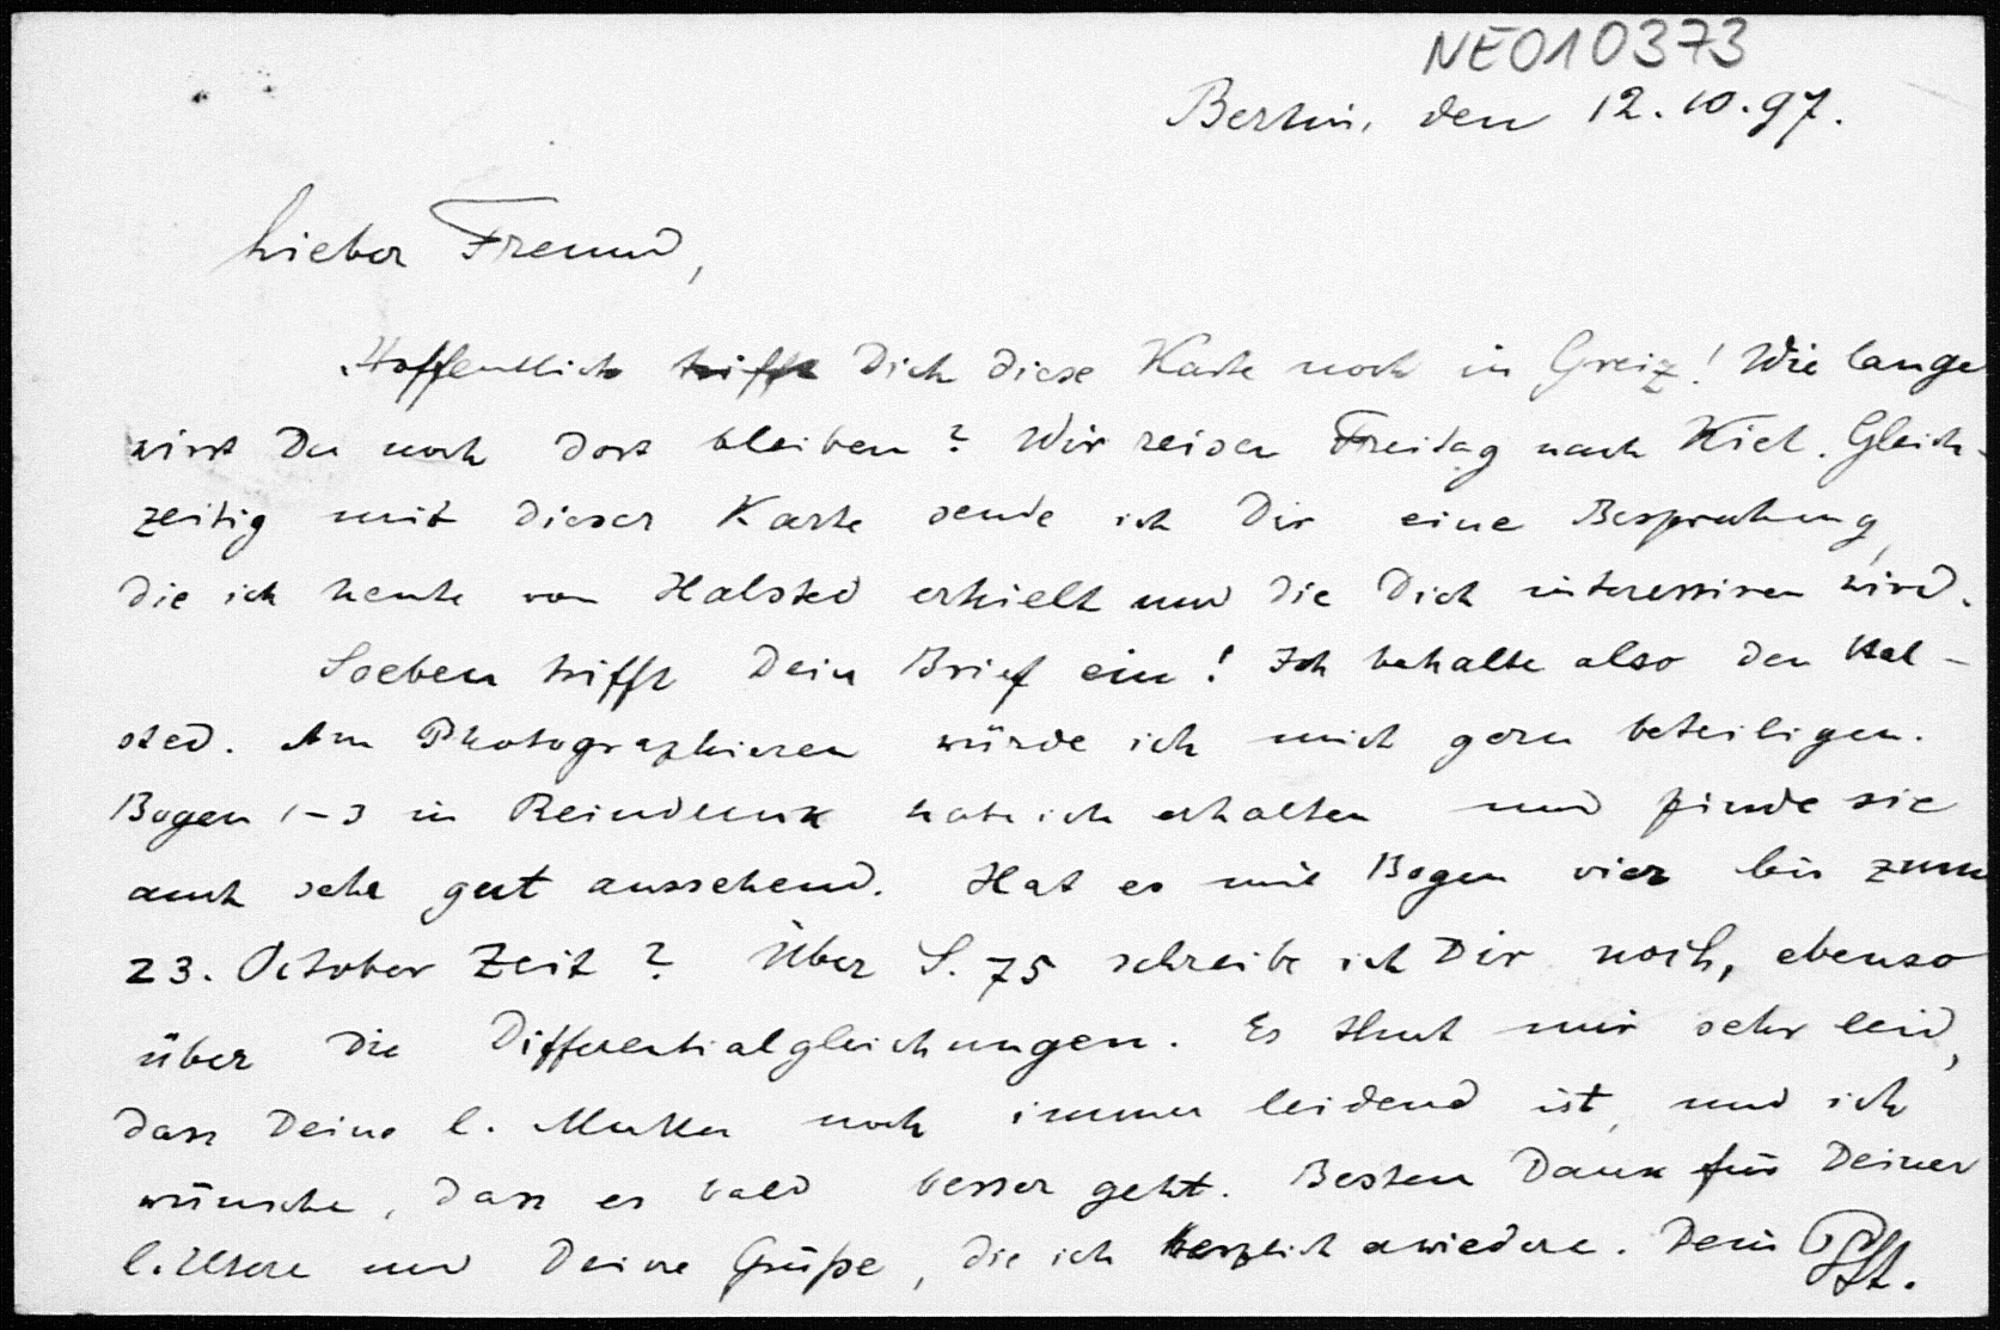 NE010373
Berlin, den 12.10.97.
Lieber Freund,
Hoffentlich trifft Dich diese Karte noch in Greiz! Wie lange
wirst Du noch dort bleiben? Wir reisen Freitag nach Kiel. Gleich-
zeitig mit dieser Karte sende ich Dir eine Besprechung,
die ich heute von Halsted erhielt und die Dich interessiren wird.
Soeben trifft Dein Brief ein! Ich behalte also den Hal-
sted. Am Photographieren würde ich mich gern beteiligen.
Bogen 1-3 in Reindruck habe ich erhalten und finde sie
auch sehr gut aussehend. Hat es mit Bogen vier bis zum
23. October Zeit? Über S. 75 schreibe ich Dir noch, ebenso
über die Differentialgleichungen. Es thut mir sehr leid,
dass Deine l. Mutter noch immer leidend ist, und ich
wünsche, dass es bald besser geht. Besten Dank für Deiner
l. Eltern und Deine Grüße, die ich herzlich erwiedere. Dein